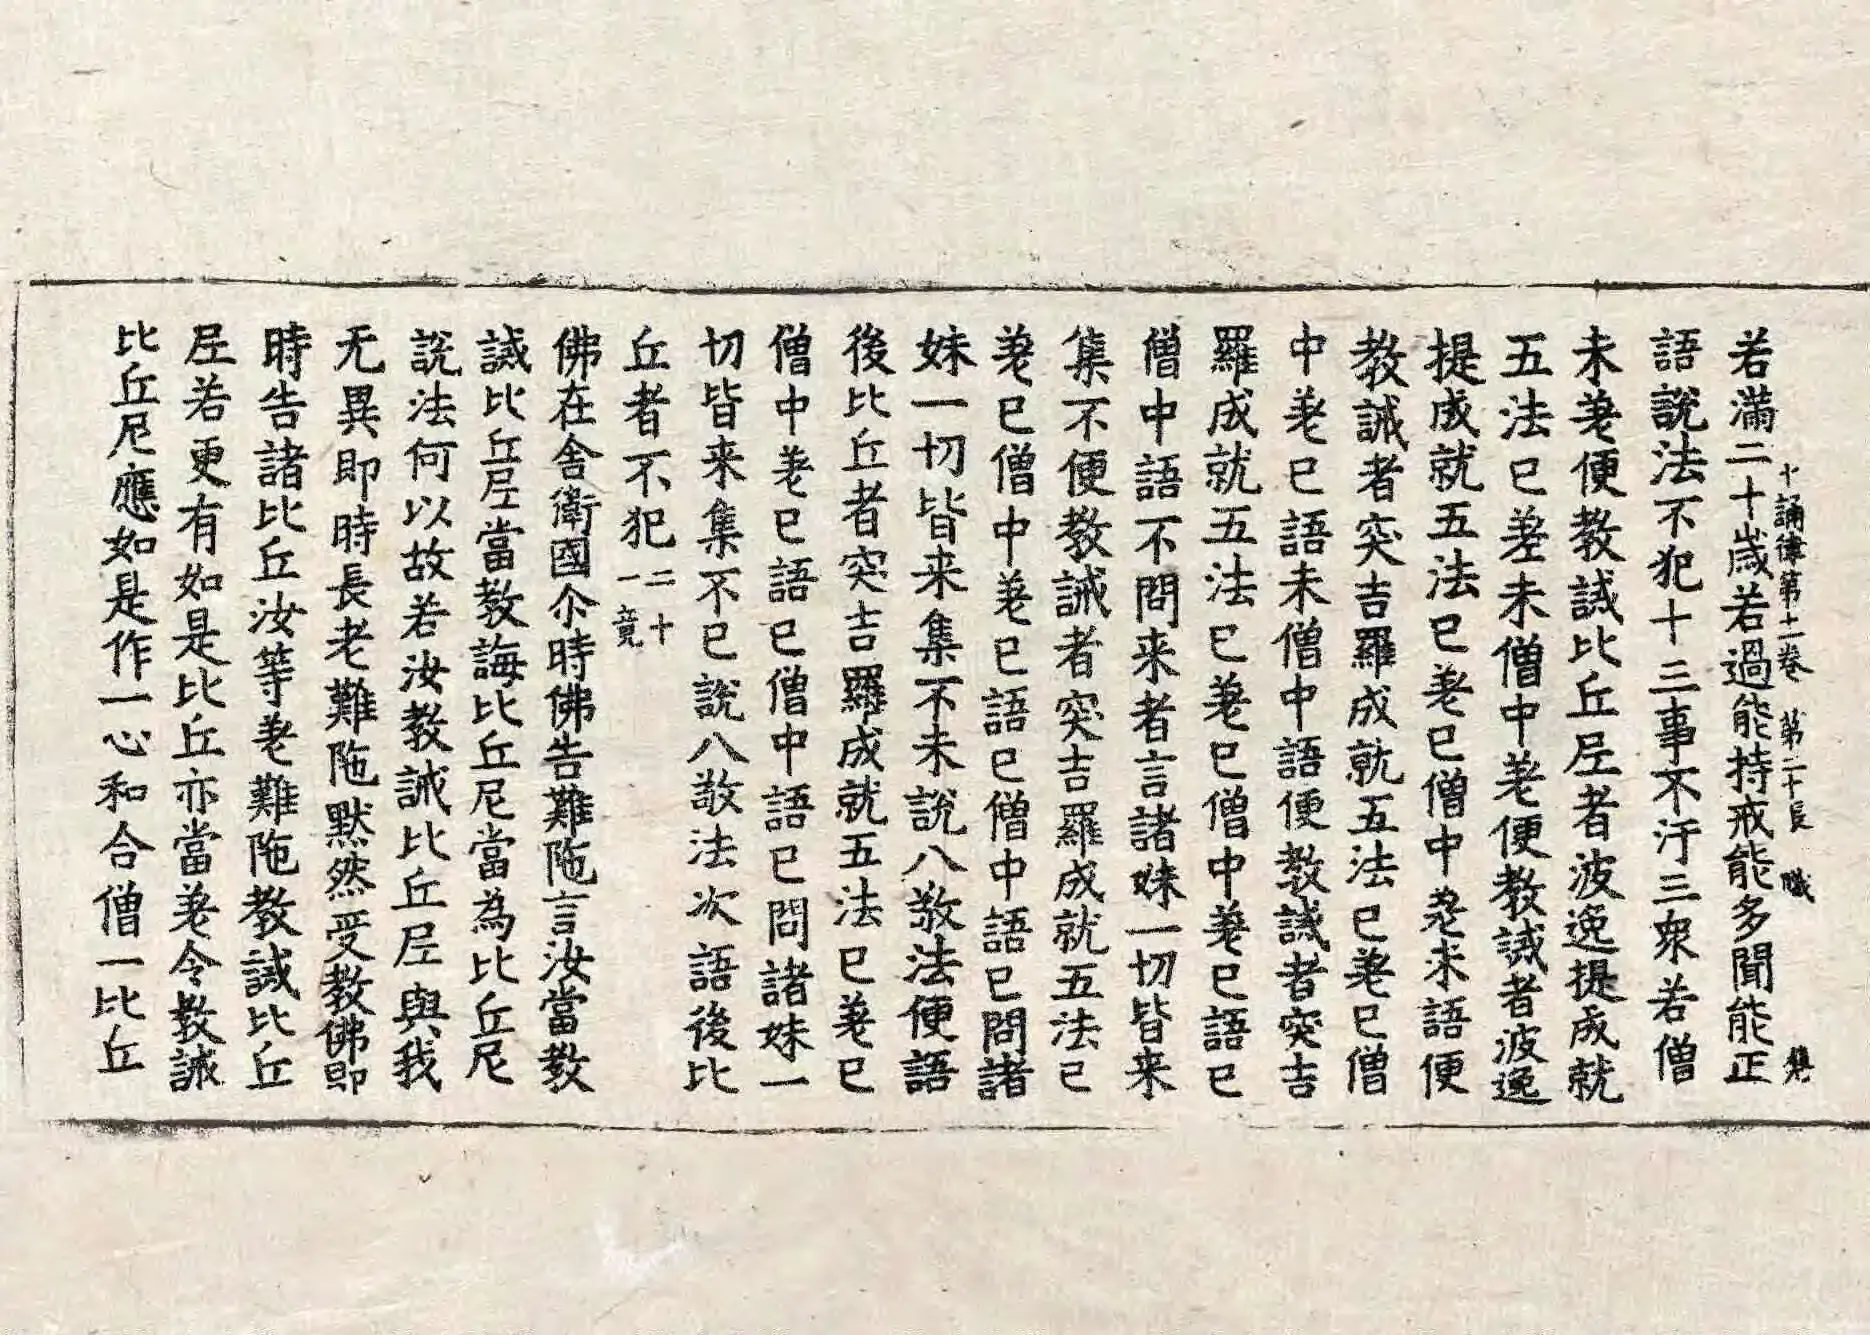 十誦律第十二卷 第二十長 職
若滿二十歳若過能持戒能多聞能正
語說法不犯十三事不汙三衆若僧
未差便教誡比丘𡰱者波逸提成就
五法已差未僧中差便教誡者波逸
提成就五法已差已僧中差未語便
教誡者突吉羅成就五法已差已僧
中差已語未僧中語便教誡者突吉
羅成就五法已差已僧中差已語已
僧中語不問来者言諸妹一切皆来
集不便教誡者突吉羅成就五法已
差已僧中差已語已僧中語已問諸
妹一切皆来集不未說八敬法便語
後比丘者突吉羅成就五法已差已
僧中差已語已僧中語已問諸妹一
切皆来集不已說八敬法次語後比
丘者不犯二十一竟
佛在舍衛國尒時佛告難陁言汝當教
誡比丘𡰱當教誨比丘尼當為比丘尼
說法何以故若汝教誡比丘𡰱與我
无異即時長老難陁默然受教佛即
時告諸比丘汝等差難陁教誡比丘
𡰱若更有如是比丘亦當差令教誡
比丘尼應如是作一心和合僧一比丘